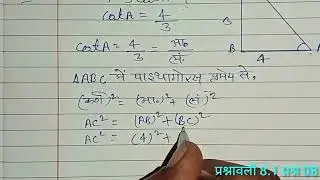 cotA = 4/3
cotA = 4/3 = आ०/लं०
3
B
4
ΔABC में पाइथागोरस प्रमेय से,
(कर्ण)² = (आ०)² + (लं०)²
AC² = (AB)² + (BC)²
AC² = (4)² +
प्रश्नावली 8.1 प्रश्न 08